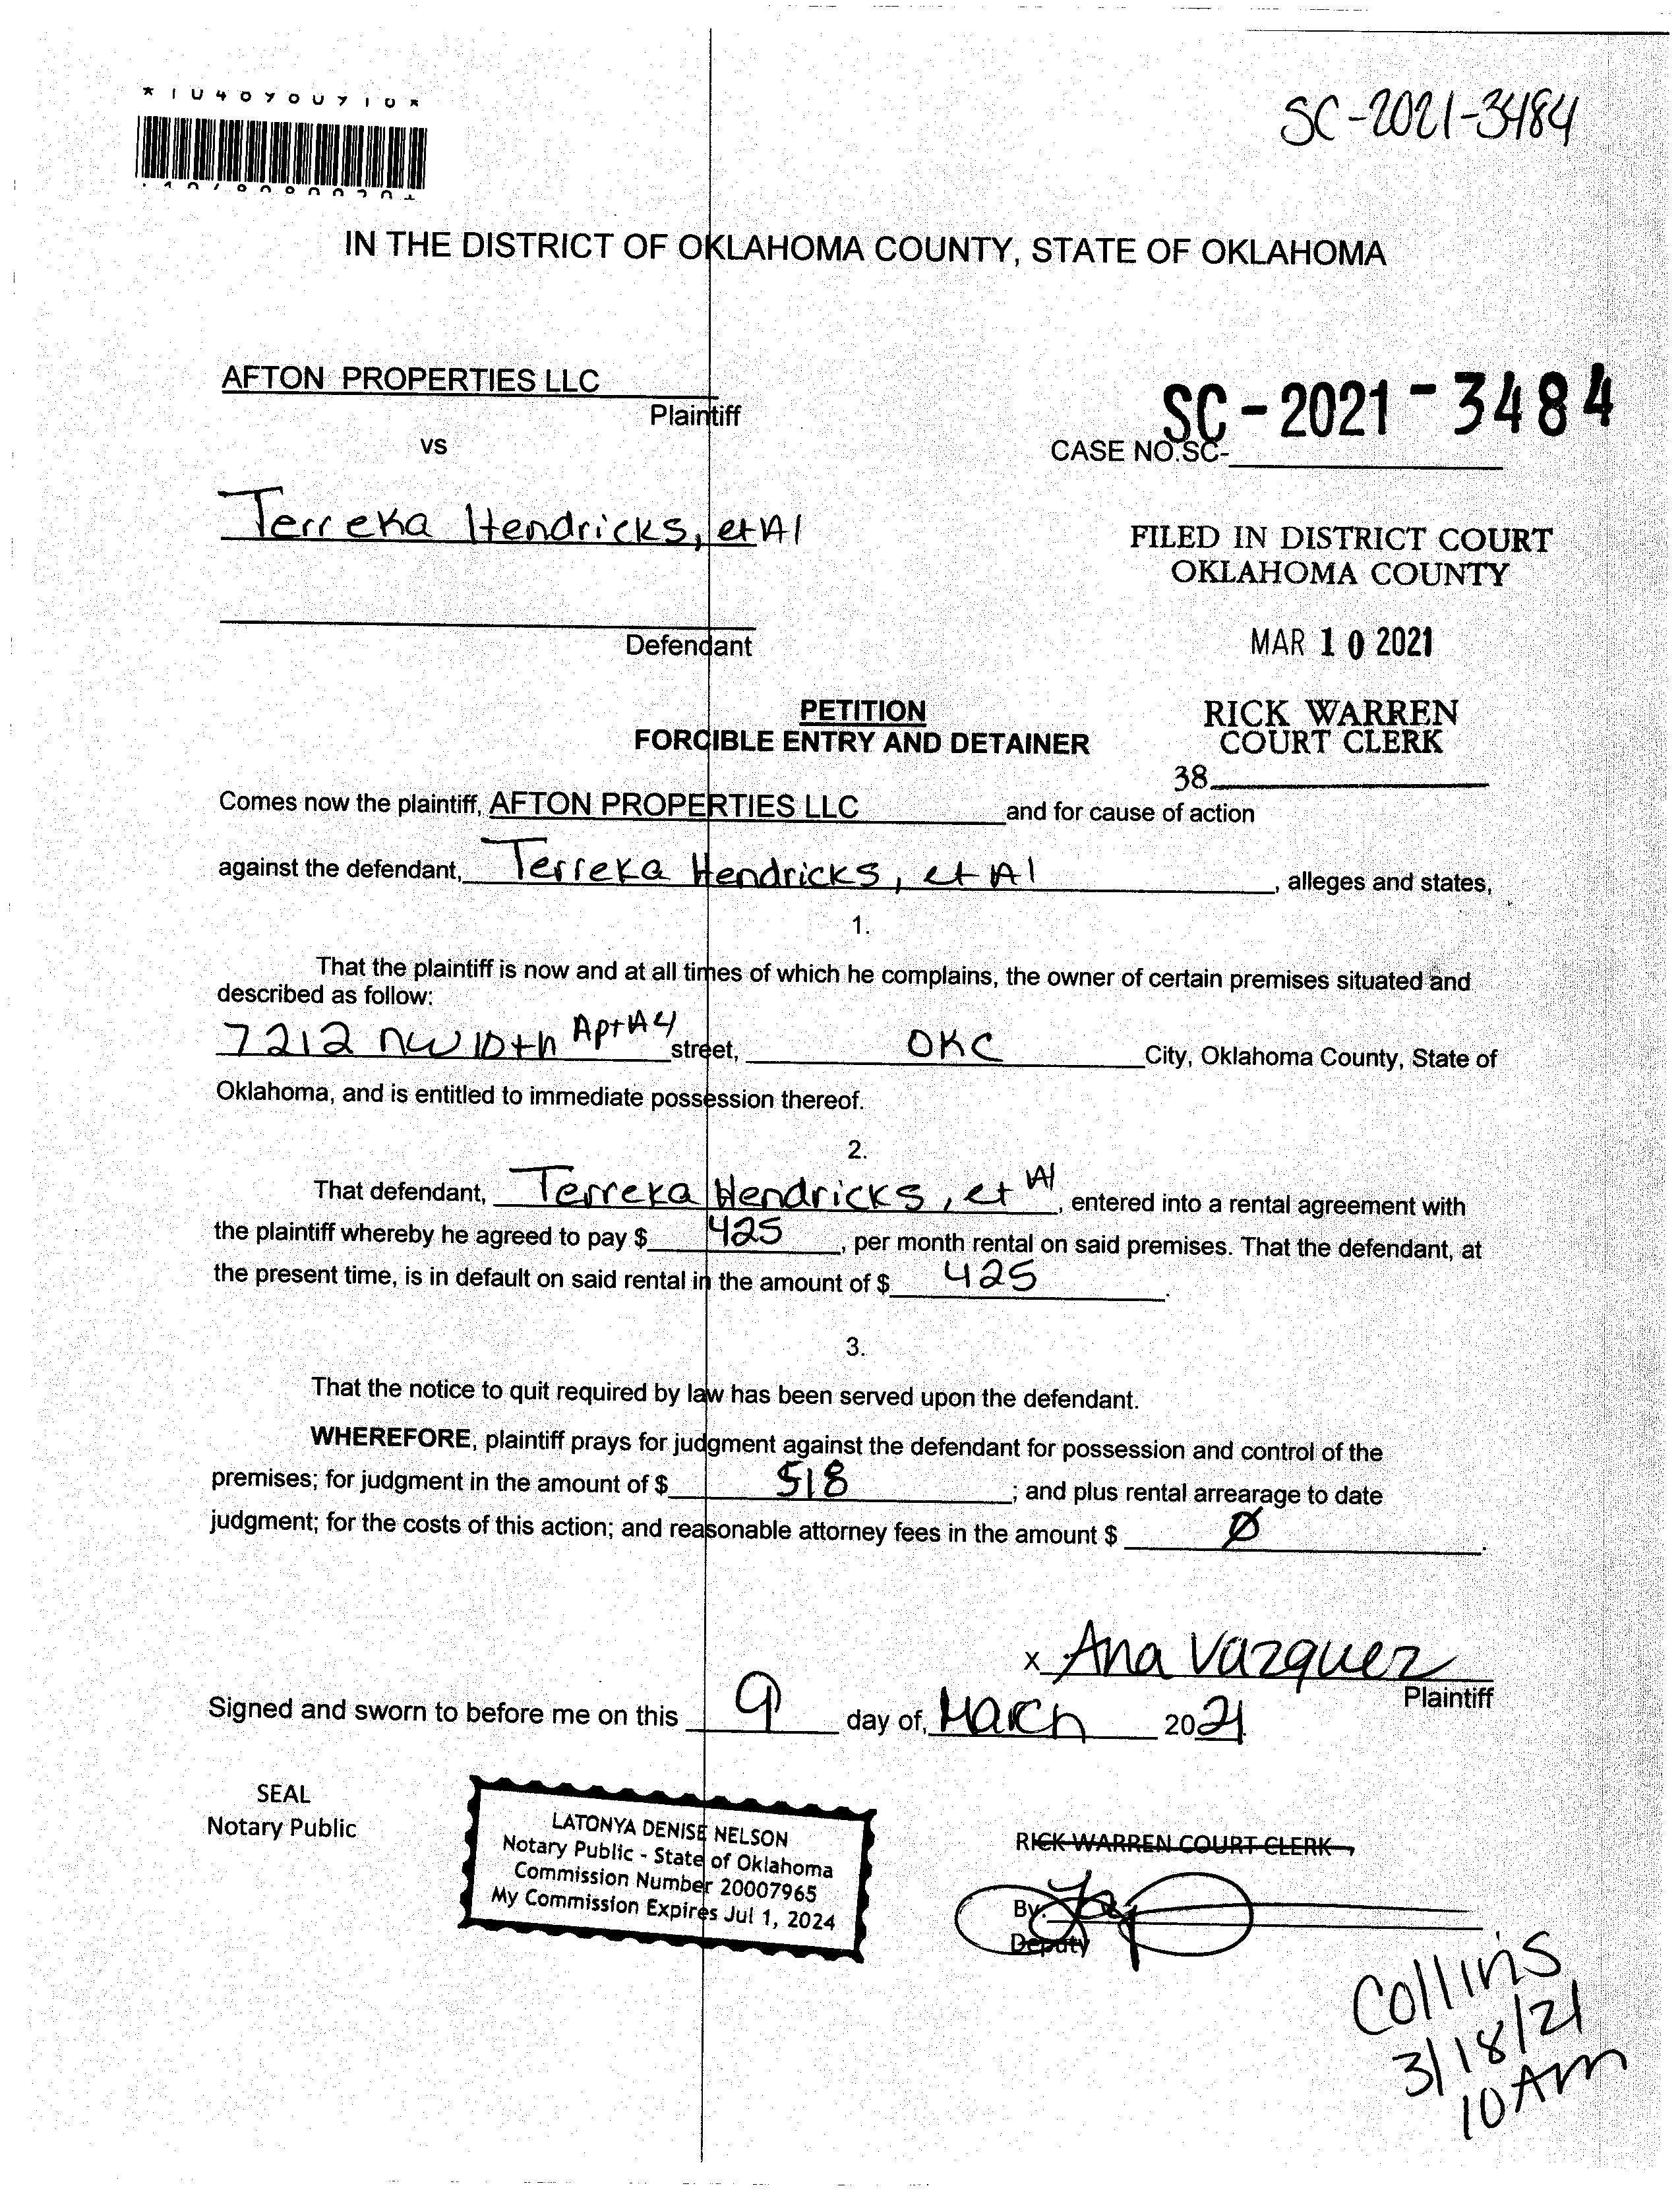 SC-2021-3484
IN THE DISTRICT OF OKLAHOMA COUNTY, STATE OF OKLAHOMA
AFTON PROPERTIES LLC
Plaintiff
vs
SC-2021-3484
CASE NO.SC-
Terreka Hendricks, et Al
FILED IN DISTRICT COURT
OKLAHOMA COUNTY
Defendant
MAR 10 2021
PETITION
FORCIBLE ENTRY AND DETAINER
RICK WARREN
COURT CLERK
38
Comes now the plaintiff, AFTON PROPERTIES LLC and for cause of action
against the defendant, Terreka Hendricks, et Al, alleges and states,
1.
That the plaintiff is now and at all times of which he complains, the owner of certain premises situated and
described as follow:
7212 NW 10th Apt A4 street, OKC City, Oklahoma County, State of
Oklahoma, and is entitled to immediate possession thereof.
2.
That defendant, Terreka Hendricks, et Al, entered into a rental agreement with
the plaintiff whereby he agreed to pay $ 425, per month rental on said premises. That the defendant, at
the present time, is in default on said rental in the amount of $ 425.
3.
That the notice to quit required by law has been served upon the defendant.
WHEREFORE, plaintiff prays for judgment against the defendant for possession and control of the
premises; for judgment in the amount of $ 518; and plus rental arrearage to date
judgment; for the costs of this action; and reasonable attorney fees in the amount $ Ø.
x Ana Vazquez
Plaintiff
Signed and sworn to before me on this 9 day of, March 2021
SEAL
Notary Public
LATONYA DENISE NELSON
Notary Public - State of Oklahoma
Commission Number 20007965
My Commission Expires Jul 1, 2024
RICK WARREN COURT CLERK
By:
Deputy
Collins
3/18/21
10 Am